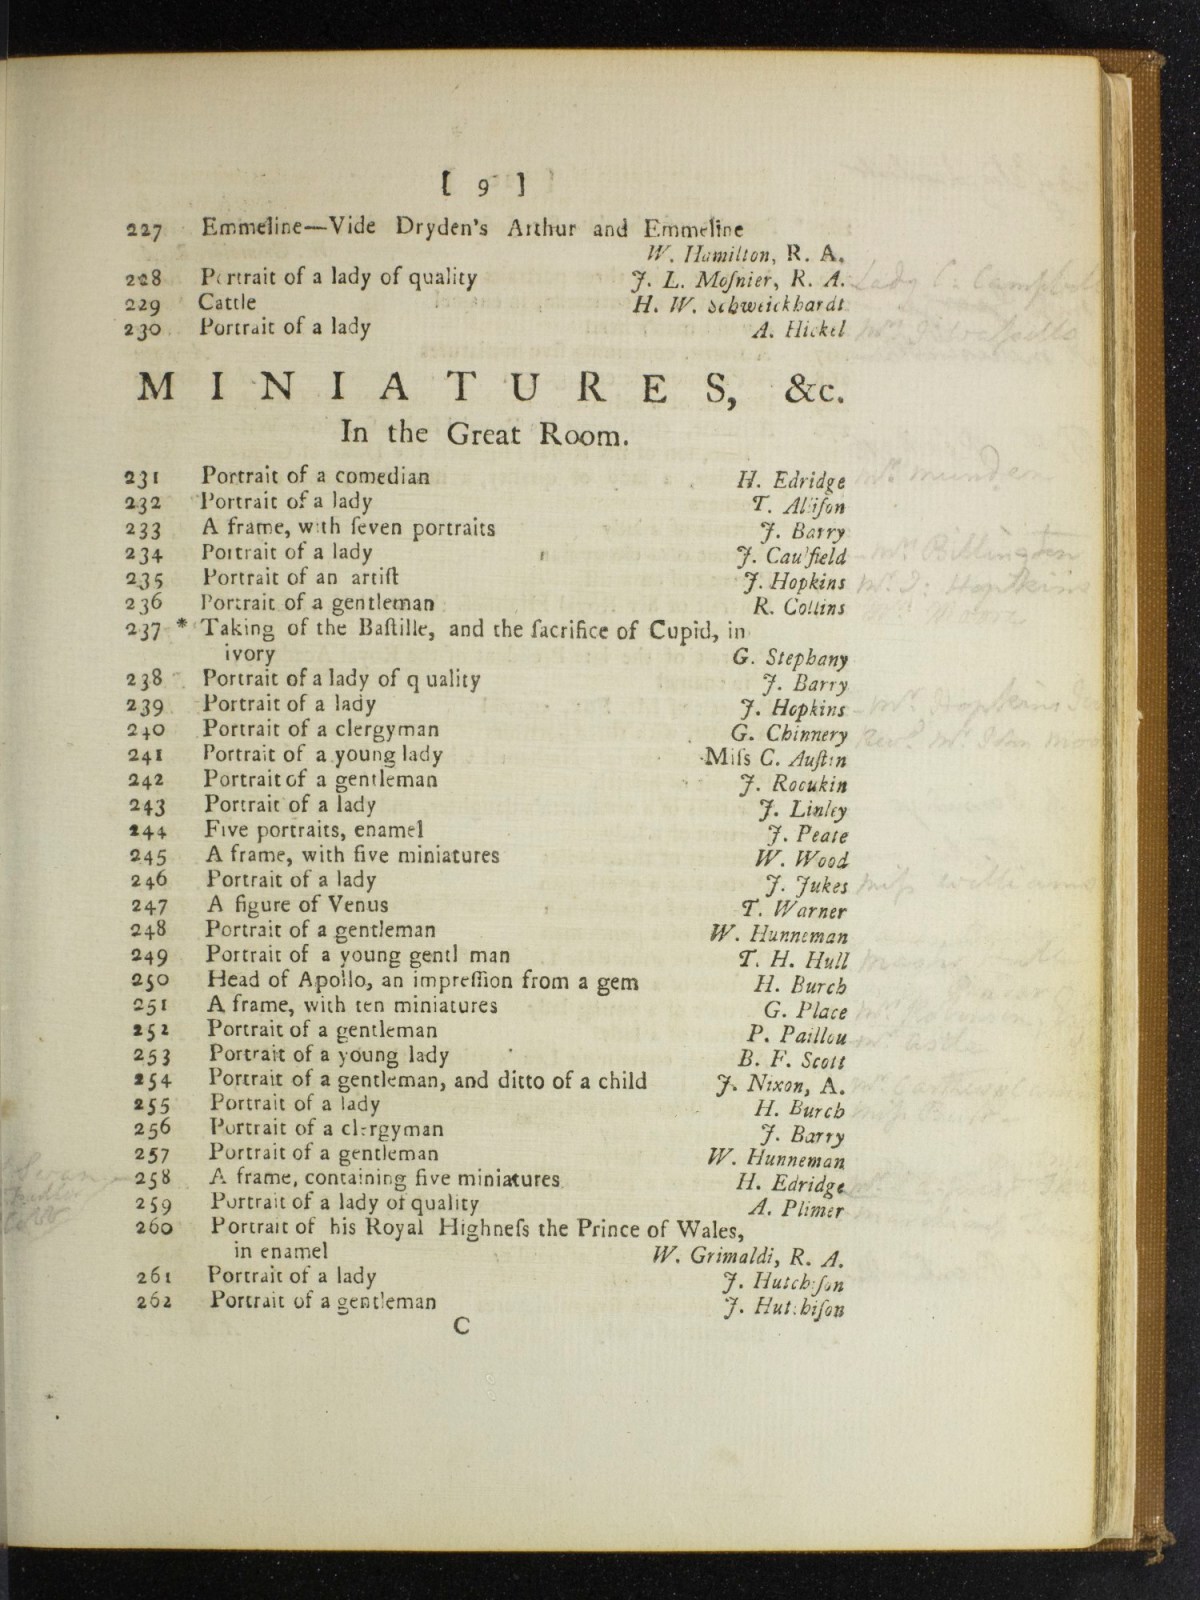 [ 9 ]
227 Emmeline—Vide Dryden's Arthur and Emmeline
W. Hamilton, R. A.
228 Portrait of a lady of quality J. L. Moſnier, R. A. Lady C: Campbell
229 Cattle H. W. Schweickhardt
230 Portrait of a lady A. Hickel
MINIATURES, &c.
In the Great Room.
231 Portrait of a comedian H. Edridge Mr. Munden
232 Portrait of a lady T. Alliſon
233 A frame, with ſeven portraits J. Barry
234 Portrait of a lady J. Caulfield Mrs. Billington
235 Portrait of an artiſt J. Hopkins Mr. J: Hopkins
236 Portrait of a gentleman R. Collins
237 * Taking of the Baſtille, and the ſacrifice of Cupid, in
ivory G. Stephany
238 Portrait of a lady of q uality J. Barry
239 Portrait of a lady J. Hopkins Mrs. Hopkins
240 Portrait of a clergyman G. Chinnery Revd. Mr.
241 Portrait of a young lady Miſs C. Auſtin
242 Portrait of a gentleman J. Rocukin
243 Portrait of a lady J. Linley
244 Five portraits, enamel J. Peate
245 A frame, with five miniatures W. Wood
246 Portrait of a lady J. Jukes Miſs Williams
247 A figure of Venus T. Warner
248 Portrait of a gentleman W. Hunneman
249 Portrait of a young gentl man T. H. Hull
250 Head of Apollo, an impreſſion from a gem H. Burch
251 A frame, with ten miniatures G. Place
252 Portrait of a gentleman P. Paillou Mr. Astle
253 Portrait of a young lady B. F. Scott
254 Portrait of a gentleman, and ditto of a child J. Nixon, A.
255 Portrait of a lady H. Burch
256 Portrait of a clergyman J. Barry
257 Portrait of a gentleman W. Hunneman
258 A frame, containing five miniatures H. Edridge
259 Portrait of a lady of quality A. Plimer
260 Portrait of his Royal Highneſs the Prince of Wales,
in enamel W. Grimaldi, R. A.
261 Portrait of a lady J. Hutchiſon
262 Portrait of a gentleman J. Hutchiſon
C